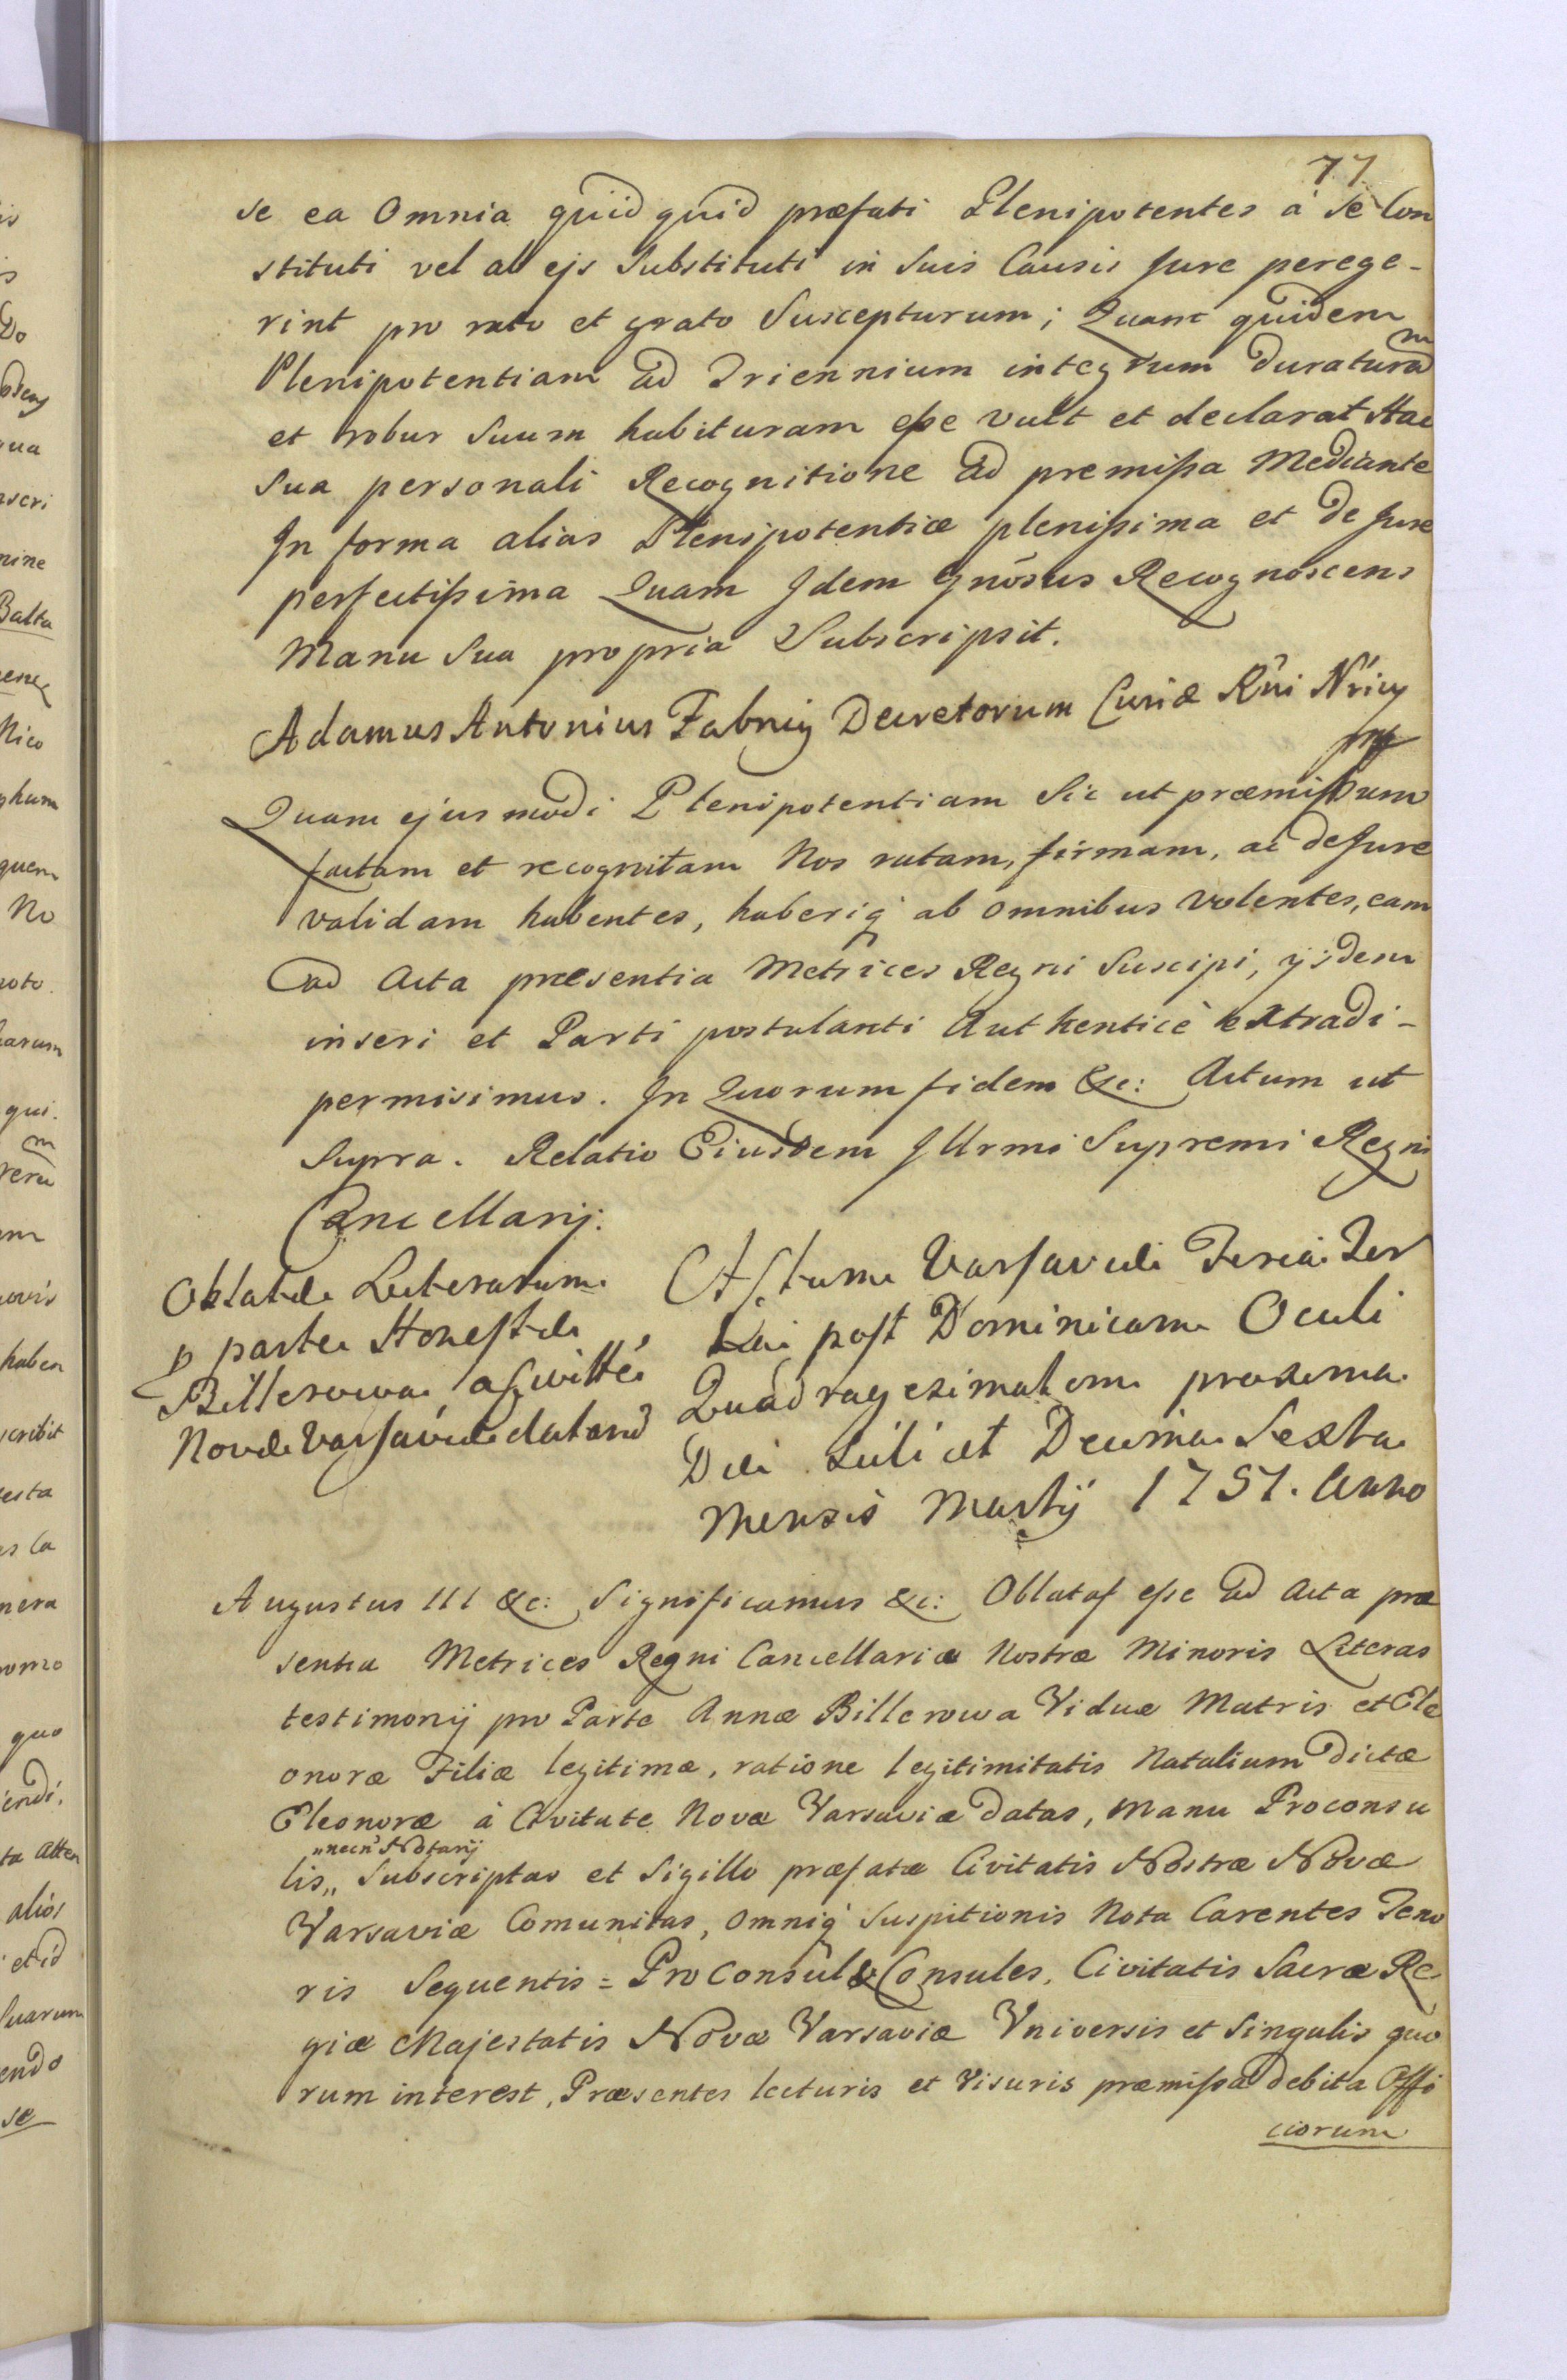 77
se ea Omnia quidquid præfati Plenipotentes à se Con
stituti vel ab ejs Substituti in Suis Causis Jure perege-
rint pro rato et grato Suscepturum; Quam quidem
Plenipotentiam ad Triennium integrum duraturam
et robur Suum habituram eſse vult et declarat Hac
Sua personali Recognitione ad premiſsa Mediante
In forma alias Plenipotentiæ pleniſsima et de Jure
perfectiſsima Quam Idem Gnōsus Recognoscens
Manu Sua propria Subscripsit.
Adamus Antonius Fabricy Decretorum Curiæ Rńi Nŕicy
mp
Quam ejusmodi Plenipotentiam Sic ut præmiſsum
factam et recognitam Nos ratam, firmam, ac de Jure
validam habentes, haberiq́ ab omnibus volentes, eam
ad Acta præsentia Metrices Regni Suscipi, ijsdem
inseri et Parti postulanti Authenticè extradi-
permisimus. In Quorum fidem &c: Actum ut
Supra. Relatio Eiusdem Illrmi Supremi Regni
Cancellarij.
Oblatæ Literarum
p parte Honeſtæ
Billerowa, a Civitté
Novæ Varſaviæ datarũ
Actum Varſaviæ Feria Ter
tia poſt Dominicam Oculi
Quadragesimalem proxima
Die Scilicet Decima Sexta
Mensis Martij 1751. Anno
Augustus III &c: Significamus &c: Oblatas eſse ad Acta præ
sentia Metrices Regni Cancellariæ Nostræ Minoris Literas
testimonij pro Parte Annæ Billerowa Viduæ Matris et Ele
onoræ Filiæ legitimæ, ratione legitimitatis Natalium dictæ
Eleonoræ à Civitate Novæ Varsaviæ datas, Manu Proconsu
„necń Notarij
lis„ Subscriptas et Sigillo præfatæ Civitatis Nostræ Novæ
Varsaviæ Comunitas, omniq́ Suspitionis Nota Carentes Teno
ris Sequentis = ProConsul & Consules, Civitatis Sacræ Re
giæ Majestatis Novæ Varsaviæ Vniversis et Singulis quo
rum interest, Præsentes lecturis et Visuris præmiſsa debita Offi
ciorum